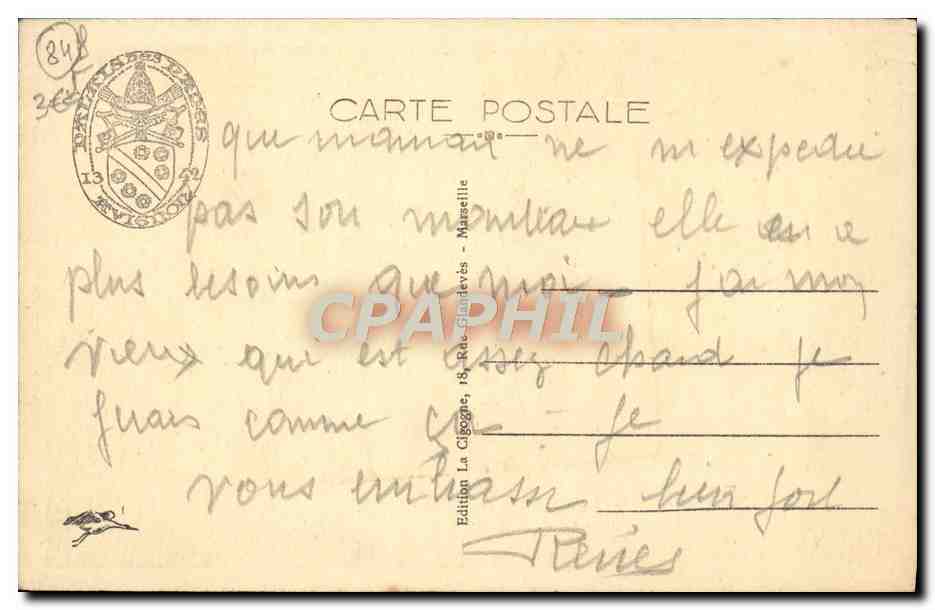 84
3€
PALAIS DES PAPES
13 42
AVIGNON
CARTE POSTALE
que maman ne m'expedie
pas son manteau elle en a
plus besoins que moi – j'ai mon
vieux qui est assez chaud je
comme ça – je
vous embrasse bien fort
Renée
Edition La Cigogne, 18, Rue Glandevès - Marseille
CPAPHIL